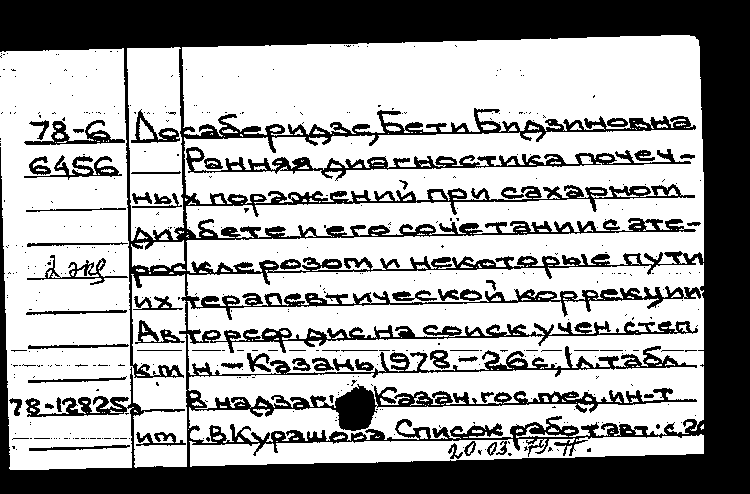 78-6 Лосаберидзе, Бети Бидзиновна
6456 Ранняя диагностика почеч-
ных поражений при сахарном
диабете и его сочетании с ате-
2 экз росклерозом и некоторые пути
их терапевтической коррекции:
Автореф. дис. на соиск. учен. степ.
к.м.н. - Казань, 1978. - 26 с., 1 л. табл.
78-12825а В надзаг.: Казан. гос. мед. ин-т
им. С.В. Курашова. Список работ авт.: с. 26
20.03.79.